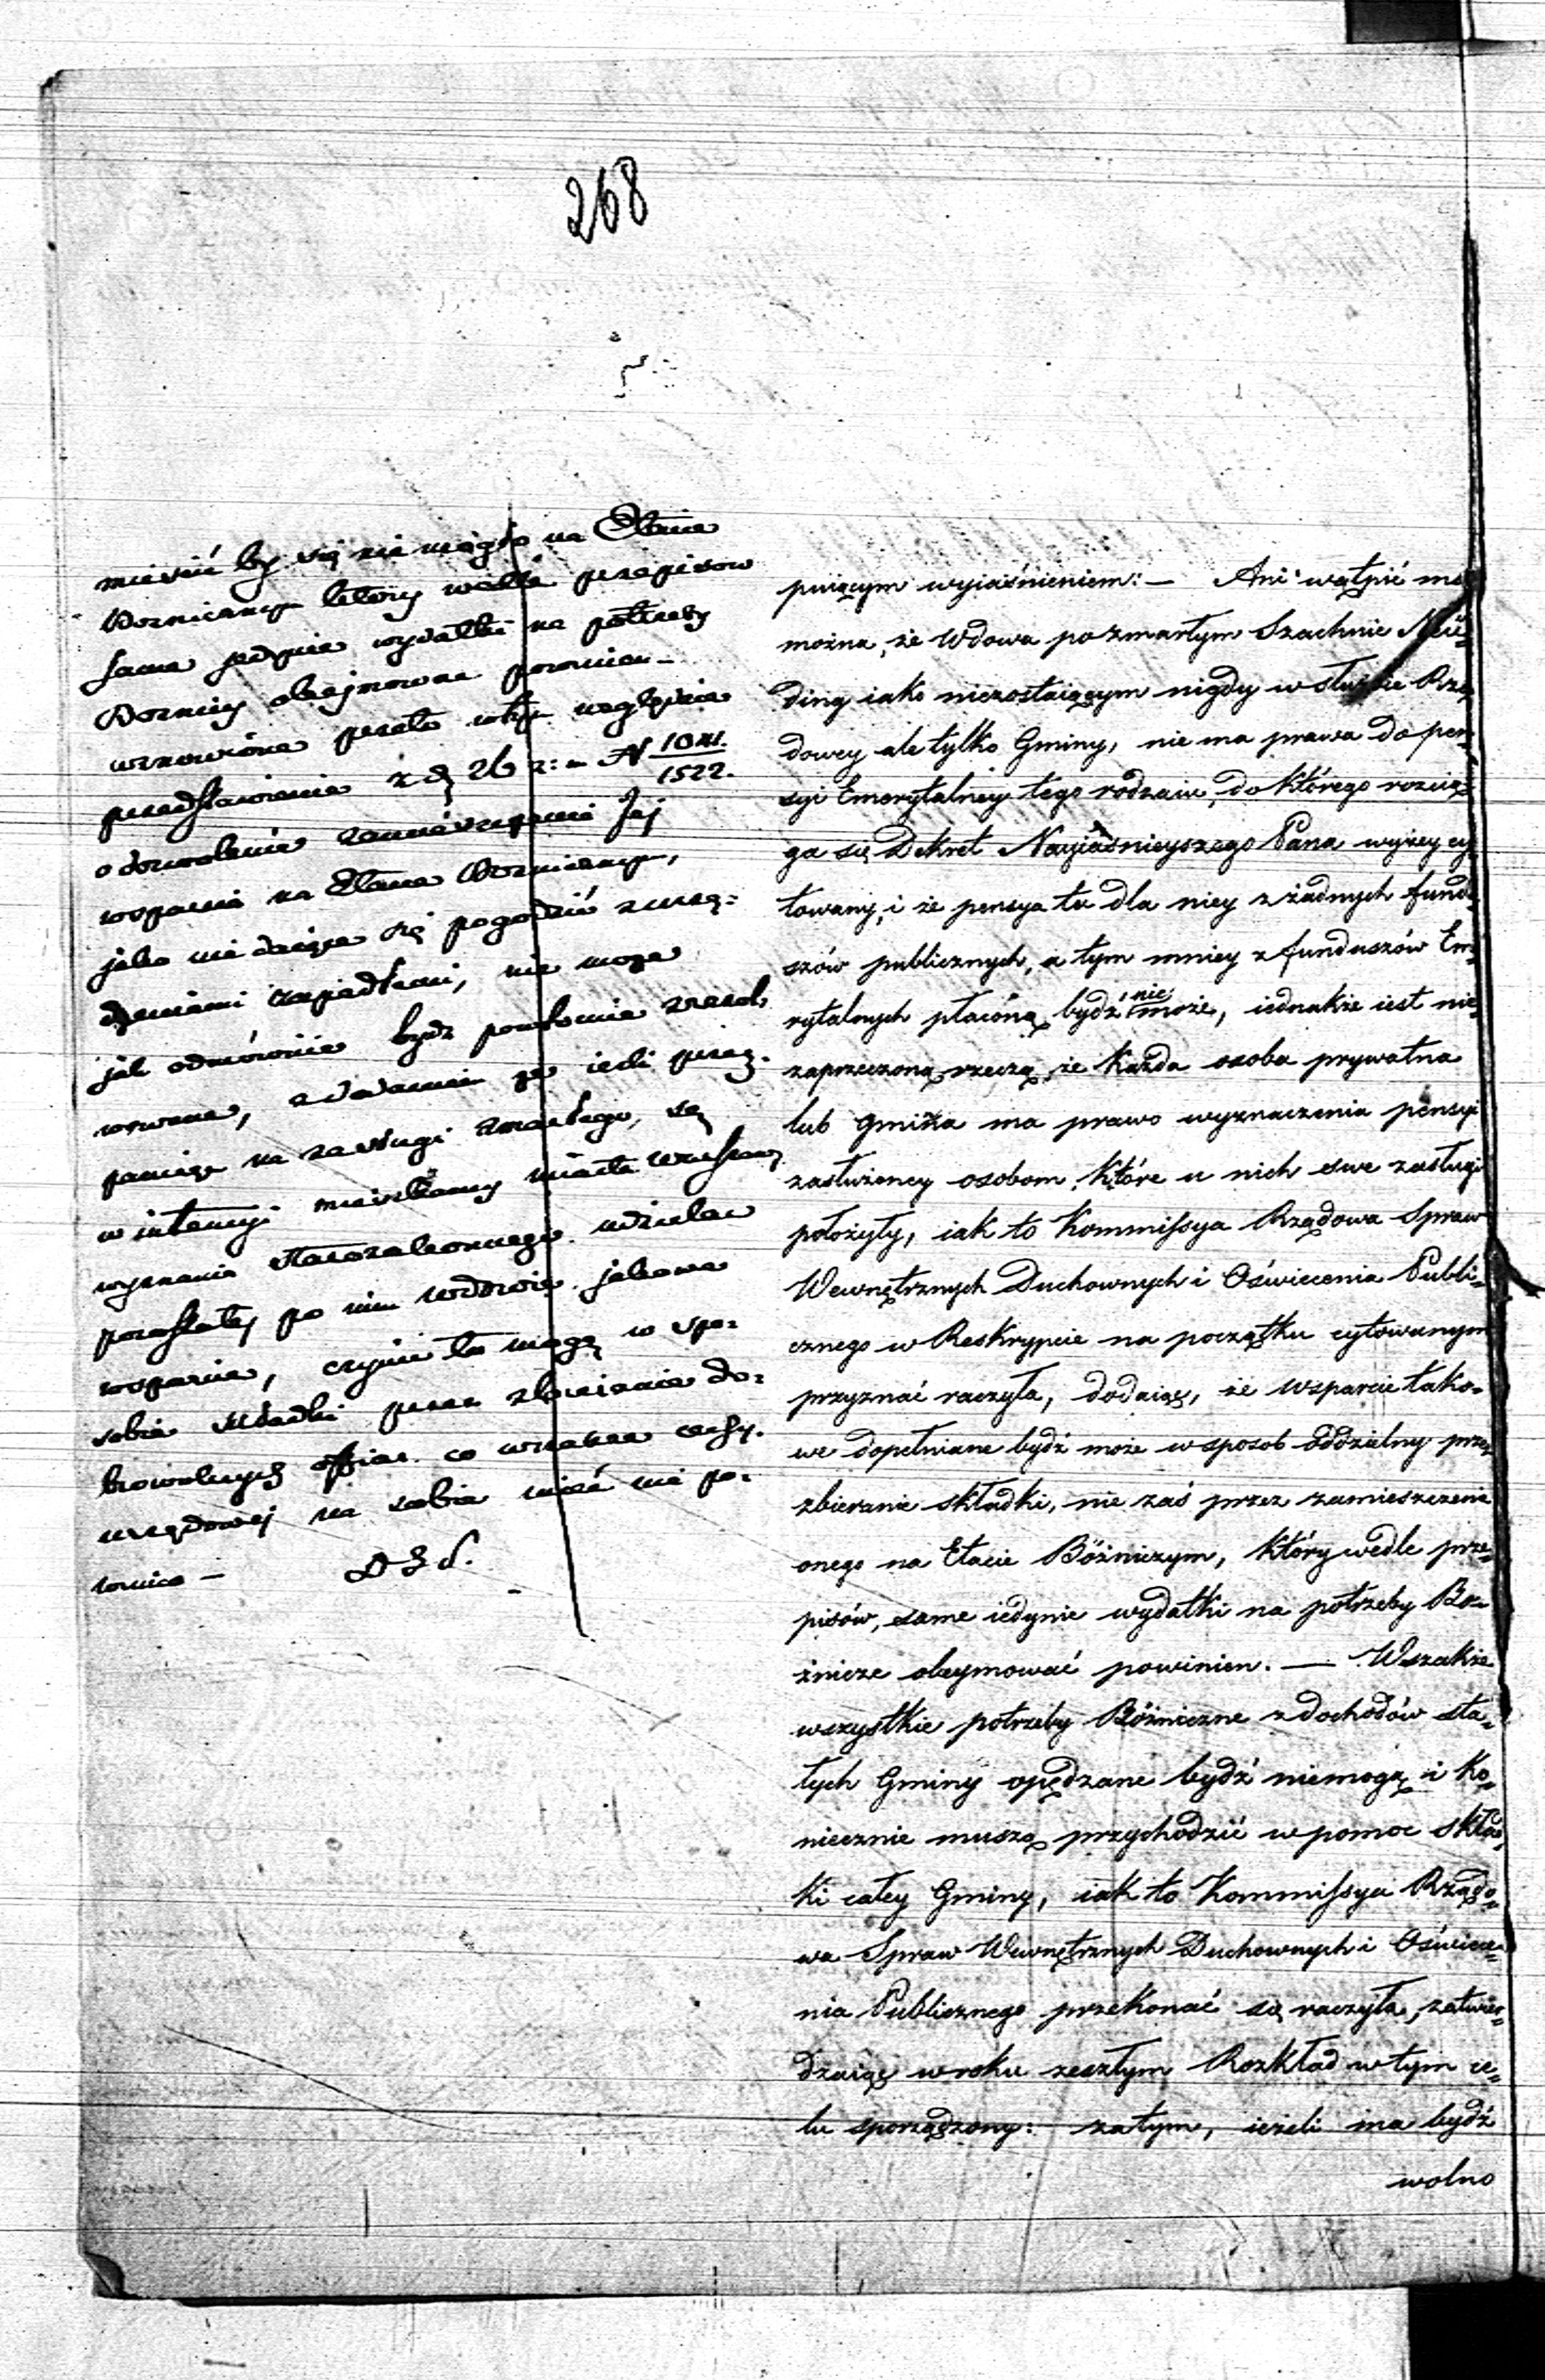 268
mieścić by się nie mogło na Etacie
Bożniczym który wedle przepisow
same jedynie wydatki na potrzeby
Bożnicy obejmować powinien –
wznowione przeto wtym względzie
przedstawienie z d 26 z: m N 1041./1522.
o dozwolenie zamieszczenia Jej
wsparcia na Etacie Bożniczym,
jako nie dające się pogodzić z urzą:
dzeniami zapadłemi, nie może
jak odmównie bydz powtornie zrezol
wowane, z dodaniem że ieśli przez
pamięć na zasługi zmarłego, są
w intencyi mieszkańcy miasta Warszawy
wyznania Starozakonnego udzielać
pozostałej po nim wdowie jakowe
wsparcie, czynić to mogą w spo:
sobie składki przez zbieranie do:
browolnych ofiar co wszakże cechy
urzędowej na sobie mieć nie po:
winno –
puiącym wyiaśnieniem: – Ani wątpić nie
można, że Wdowa po zmarłym Szachnie Neü-
ding iako niezostaiącym nigdy w służbie Rzą
dowey ale tylko Gminy, nie ma prawa do pen-
syi Emerytalney tego rodzaiu, do którego rozcią-
ga się Dekret Nayiaśnieyszego Pana wyżey cy-
towany, i że pensya ta dla niey z żadnych fundu-
szów publicznych, a tym mniey z funduszów Eme-
rytalnych płaconą bydź nie może, iednakże iest nie-
zaprzeczoną rzeczą, że każda osoba prywatna
lub Gmina ma prawo wyznaczenia pensyi
zasłużoney osobom, które u nich swe zasługi
położyły, iak to Kommissya Rządowa Spraw
Wewnętrznych Duchownych i Oświecenia Publi-
cznego w Reskrypcie na początku cytowanym
przyznać raczyła, dodaiąc, że wsparcie tako-
we dopełniane bydź może w sposob oddzielny przez
zbieranie składki, nie zaś przez zamieszczenie
onego na Etacie Bóżniczym, który wedle prze-
pisów, same iedynie wydatki na potrzeby Bo-
żnicze obeymować powinien. — Wszakże
wszystkie potrzeby Bóżniczne z dochodów sta-
łych Gminy opędzane bydź niemogą i ko-
niecznie muszą przychodzić w pomoc skład-
ki całey Gminy, iak to Kommissya Rządo-
wa Spraw Wewnętrznych Duchownych i Oświece-
nia Publicznego przekonać się raczyła, zatwier-
dzaiąc w roku zeszłym Rozkład w tym ce-
lu sporządzony: zatym, ieżeli ma bydź
wolno